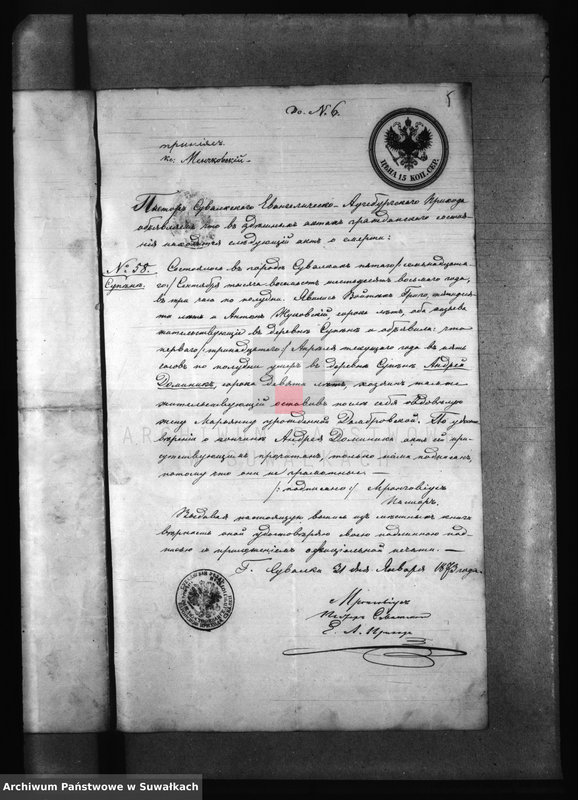 До N. 6.
5
ЦѢНА 15 КОП. СЕР.
принялъ
кс. Мочковскій.
Пасторъ Сувалкскаго Евангелическо-Аугсбургскаго Прихода
объявляетъ что въ здѣшнихъ актахъ гражданскаго состоя-
нія находится слѣдующій актъ о смерти:
№ 58.
Супѣнь.
Состоялось въ городѣ Сувалкахъ пятаго /: семнадцата-
го:/ Сентября тысяча восемьсотъ шестьдесятъ восьмаго года,
въ три часа по полудни. Явились Войтехъ Григо, пятидеся-
ти лѣтъ и Антонъ Жуковскій, сорока лѣтъ, оба
жительствующіе въ деревнѣ Супѣнь и объявили: что
перваго /: тринадцатаго:/ Апрѣля текущаго года въ пять
часовъ по полудни умеръ въ деревнѣ Супѣнь Андрей
Доминикъ, сорока девяти лѣтъ, хозяинъ тамъ же
жительствующій оставивъ послѣ себя вдовою
жену Маріянну урожденную Домбровской. По удосто-
вѣреніи о кончинѣ Андрея Доминика актъ сей при-
сутствующимъ прочитанъ, только нами подписанъ,
потому что они не грамотные. —
/: подписано :/ Мронговіусъ
Пасторъ.
Выдавая настоящую выпись изъ мѣстныхъ книгъ
вѣрность оной удостовѣряю своею подлинною под-
писью и приложеніемъ оффиціальной печати. —
Г. Сувалки 21 дня Января 1873 года.
Мронговіусъ
Пасторъ Сувалкскій
Е. А. Прихода
Archiwum Państwowe w Suwałkach